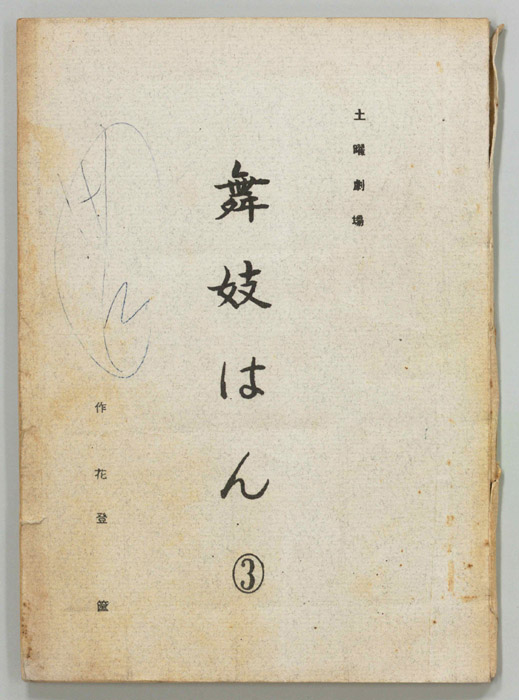 土曜劇場
舞妓はん③
作 花登 筐